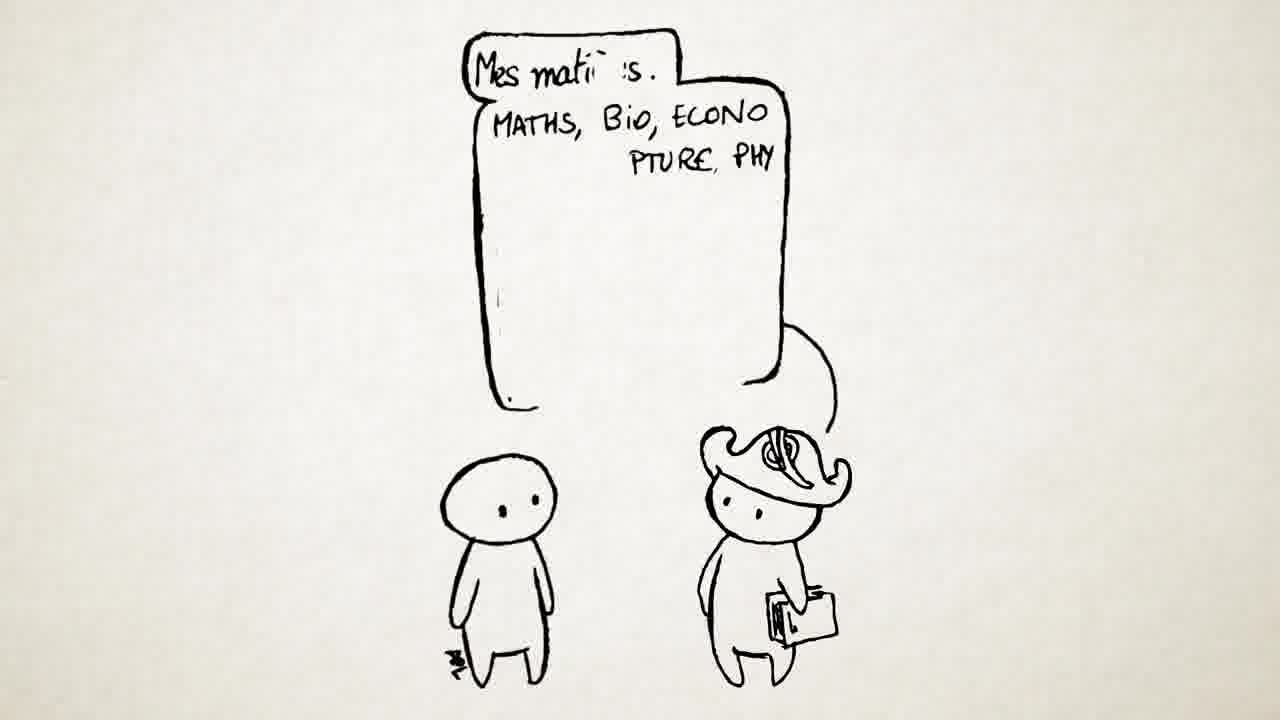 Mes
MATHS, Bio, ECONO
PTURE, PHY